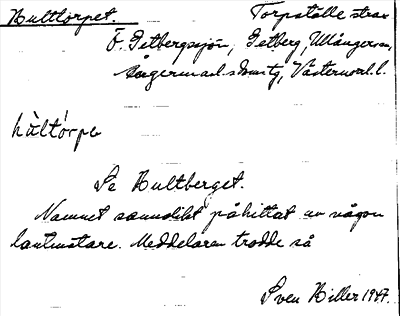 Hulttorpet. Torpställe strax
Ö. Getbergssjön, Getberg, Ullånger sn,
Ångermanl. s domsg, Västernorrl. l.
hùltórpe
Se Hultberget.
Namnet sannolikt påhittat av någon
lantmätare. Meddelaren trodde så
Sven Hiller 1947.